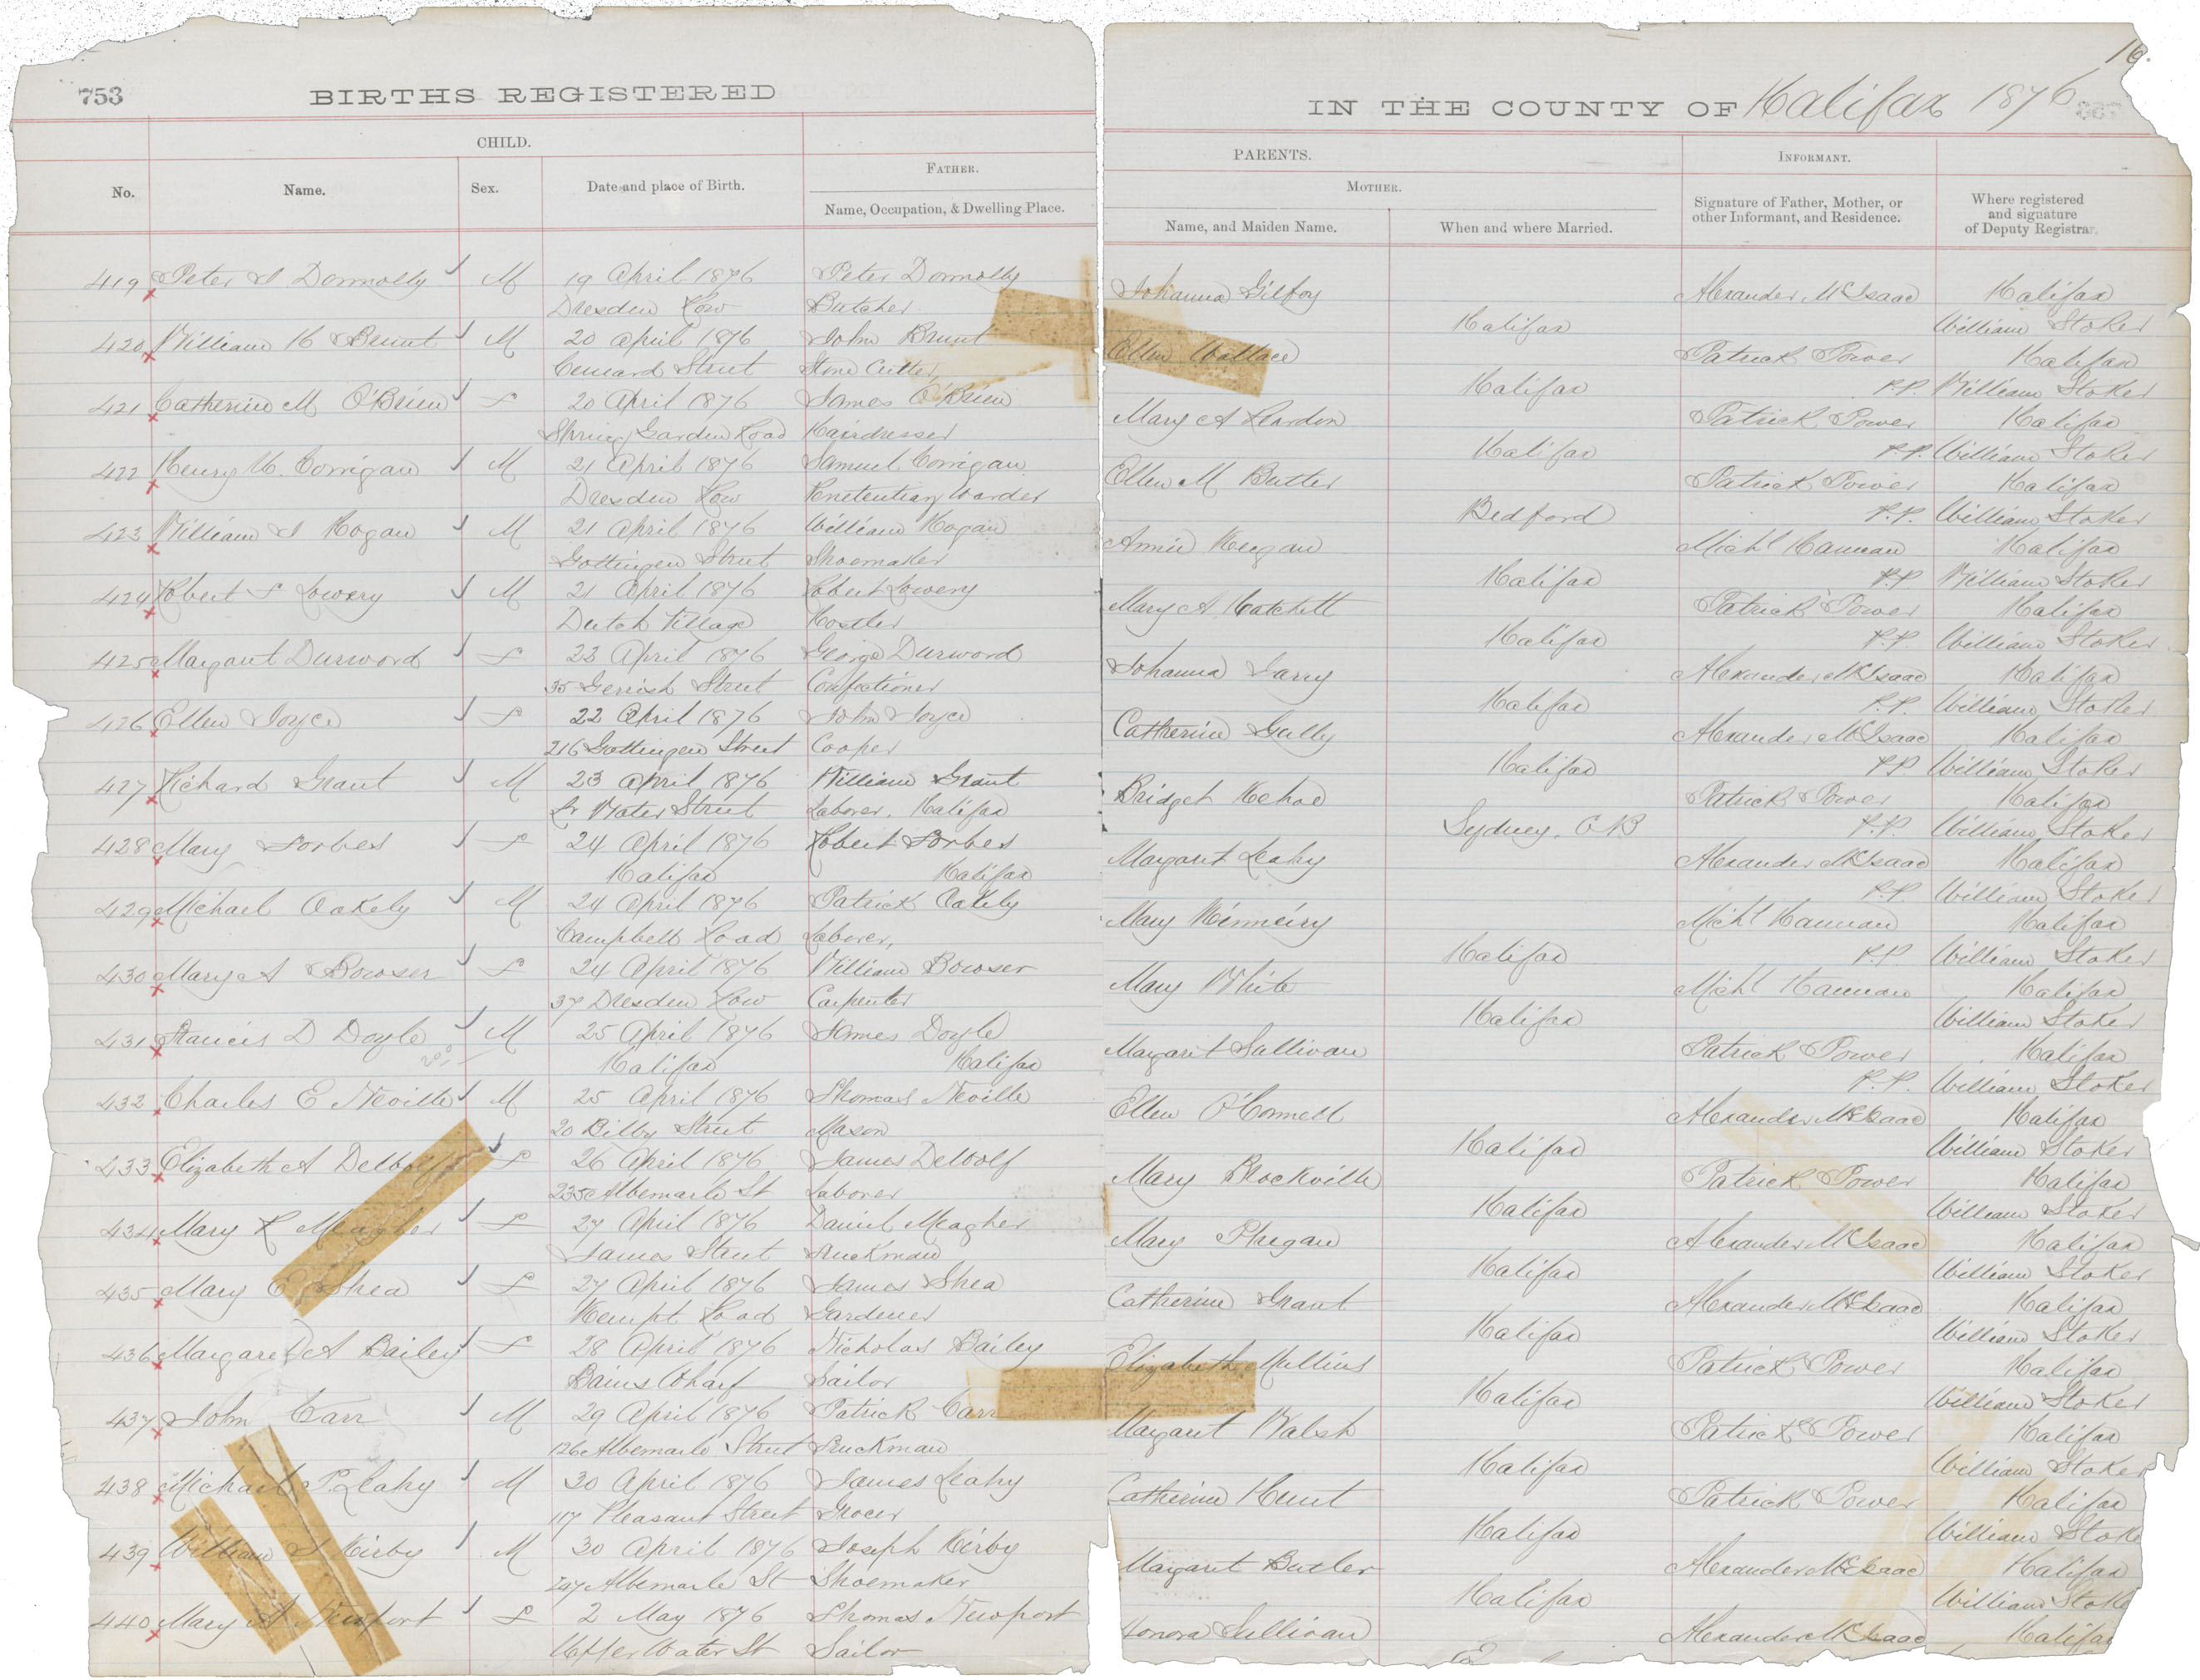 753
BIRTHS REGISTERED
IN THE COUNTY OF Halifax 1876
16.
CHILD.
PARENTS.
INFORMANT.
No.
Name.
Sex.
Date and place of Birth.
FATHER.
Name, Occupation, & Dwelling Place.
MOTHER.
Name, and Maiden Name.
When and where Married.
Signature of Father, Mother, or
other Informant, and Residence.
Where registered
and signature
of Deputy Registrar
419 Peter J Donnolly M 19 April 1876 Peter Donnolly Johanna Gilfoy Alexander McIsaac Halifax
Dresden Row Butcher Halifax William Stoker
420 William H Brunt M 20 April 1876 John Brunt Ellen Wallace Patrick Power Halifax
Cunard Street Stone Cutter Halifax P.P. William Stoker
421 Catherine M O'Brien f 20 April 1876 James O'Brien Mary A Reardon Patrick Power Halifax
Spring Garden Road Hairdresser Halifax P.P. William Stoker
422 Henry W. Corrigan M 21 April 1876 Samuel Corrigan Ellen M Butler Patrick Power Halifax
Dresden Row Penetentiary Warder Bedford P.P. William Stoker
423 William J Hogan M 21 April 1876 William Hogan Annie Keegan Michl Hannan Halifax
Gottingen Street Shoemaker Halifax P.P. William Stoker
424 Robert Lowery M 21 April 1876 Robert Lowery Mary A. Hatchett Patrick Power Halifax
Dutch Village Hostler Halifax P.P. William Stoker
425 Margaret Durword f 22 April 1876 George Durword Johanna Alexander McIsaac Halifax
35 Gerrish Street Confectioner Halifax P.P. William Stoker
426 Ellen Joyce f 22 April 1876 John Joyce Catherine Gully Alexander McIsaac Halifax
216 Gottingen Street Cooper Halifax P.P. William Stoker
427 Richard Grant M 23 April 1876 William Grant Bridget Kehoe Patrick Power Halifax
Lr Water Street Laborer, Halifax Sydney, C B P.P. William Stoker
428 Mary Forbes f 24 April 1876 Robert Forbes Margaret Leahy Alexander McIsaac Halifax
Halifax Halifax P.P. William Stoker
429 Michael Oakely M 24 April 1876 Patrick Oakely Mary Michl Hannan Halifax
Campbell Road Laborer, Halifax P.P. William Stoker
430 Mary A Bowser f 24 April 1876 William Bowser Mary White Michl Hannan Halifax
37 Dresden Row Carpenter Halifax William Stoker
431 Francis D Doyle M 25 April 1876 James Doyle Margaret Sullivan Patrick Power Halifax
Halifax Halifax P.P. William Stoker
432 Charles E Neville M 25 April 1876 Thomas Neville Ellen O'Connell Alexander McIsaac Halifax
20 Bilby Street Mason Halifax William Stoker
433 Elizabeth A DeWolf f 26 April 1876 James DeWolf Mary Blockville Patrick Power Halifax
235 Albemarle St Laborer Halifax William Stoker
434 Mary R Meagher f 27 April 1876 Daniel Meagher Mary Phegan Alexander McIsaac Halifax
James Street Truckman Halifax William Stoker
435 Mary E Shea f 27 April 1876 James Shea Catherine Grant Alexander McIsaac Halifax
Kempt Road Gardener Halifax William Stoker
436 Margaret A Bailey f 28 April 1876 Nicholas Bailey Elizabeth Mullins Patrick Power Halifax
Bains Wharf Sailor Halifax William Stoker
437 John Carr M 29 April 1876 Patrick Carr Margaret Walsh Patrick Power Halifax
126 Albemarle Street Truckman Halifax William Stoker
438 Michael P. Leahy M 30 April 1876 James Leahy Catherine Hunt Patrick Power Halifax
117 Pleasant Street Grocer Halifax William Stoke
439 William J Kirby M 30 April 1876 Joseph Kirby Margaret Butler Alexander McIsaac Halifax
Albemarle St Shoemaker Halifax William Stoke
440 Mary A Newport f 2 May 1876 Thomas Newport Honora Sullivan Alexander McIsaac Halifax
Upper Water St Sailor